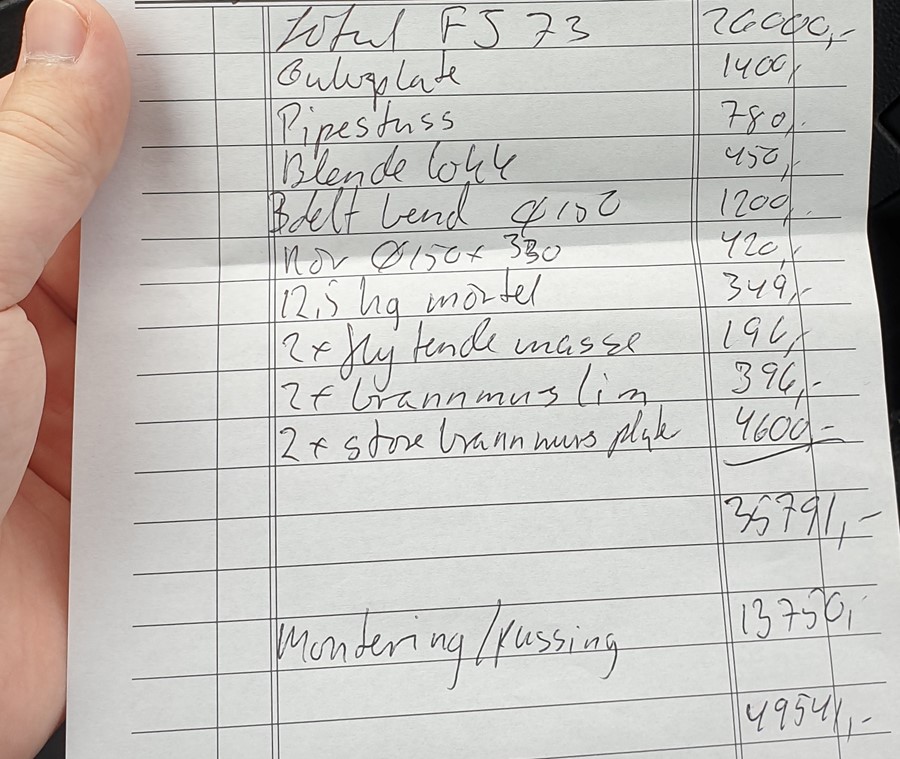 Jotul FS 73 26000,-
Gulvplate 1400,-
Pipestuss 780,-
Blende lokk 450,-
3delt bend Ø 150 1200,-
Rør Ø150x 330 420,-
12,5 kg mørtel 349,-
2x flytende masse 196,-
2x brannmurs lim 396,-
2x store brannmurs plate 4600,-
35791,-
Montering/Pussing 13750,-
49541,-